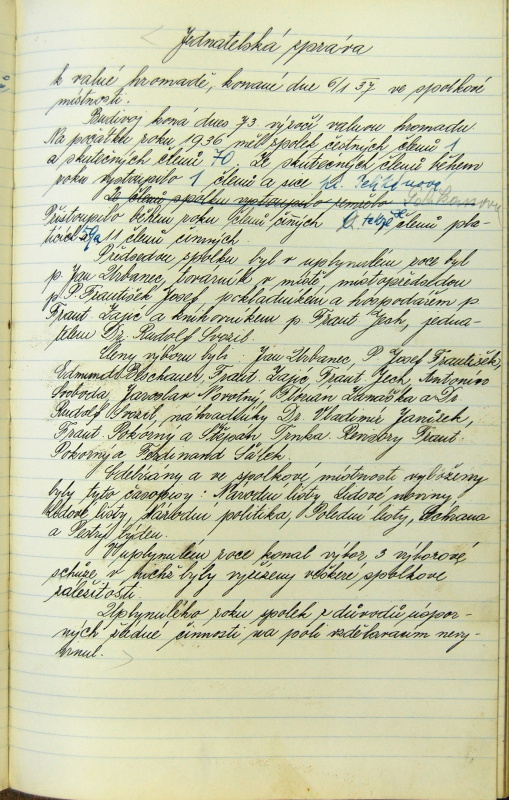 Jednatelská zpráva
k valné hromadě, konané dne 6/1 37 ve spolkové
místnosti.
Budivoj koná dnes 73 výroční valnou hromadu
Na počátku roku 1936 měl spolek čestných členů 1
a skutečných členů 70. Ze skutečných členů během
roku vystoupilo 1 členů a sice pí.
Ze členů spolku vystoupilo zemřelo
Přistoupilo během roku členů činných členů pola-
tících 59 a 11 členů činných.
Předsedou spolku byl v uplynulém roce byl
p. Jan Urbanec, továrník v místě, místopředsedou
p. P. František Josef, pokladníkem a hospodářem p.
Frant Zajíc a knihovníkem p. Frant Jech, jedna-
telem Dr. Rudolf Svozil.
Členy výboru byli: Jan Urbanec, P. Josef František,
Edmund Frant. Zajíc, Frant. Jech, Antonín
Svoboda, Jaroslav Novotný, Florian a Dr
Rudolf Svozil, náhradníky Dr. Vladimír Janeček,
Frant. Pokorný a Štěpán Trnka. Revisory Frant.
Pokorný a Ferdinand Šálek.
Odebírány a ve spolkové místnosti vyloženy
byly tyto časopisy: Národní listy, Lidové noviny,
Lidové listy, Národní politika, Polední listy, Ochrana
a Pestrý týden.
V uplynulém roce konal výbor 3 výborové
schůze, v nichž byly vyřízeny veškeré spolkové
záležitosti.
Uplynulého roku spolek z důvodů úspor-
ných žádné činnosti na poli vzdělávacím nevy-
vinul.